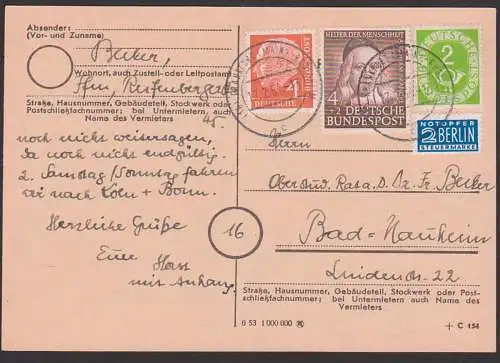 Absender:
(Vor- und Zuname)
Becker,
Wohnort, auch Zustell- oder Leitpostamt
Ffm, Reifenbergerst
Straße, Hausnummer, Gebäudeteil, Stockwerk oder
Postschließfachnummer; bei Untermietern auch
Name des Vermieters
45.
noch nicht weitersagen,
da noch nicht endgültig.
2. Samstag/Sonntag fahren
wir nach Köln + Bonn.
Herzliche Grüße
Euer
Horst
mit Anhang.
DEUTSCHE
BUNDESPOST
4
HELFER DER MENSCHHEIT
4+2
DEUTSCHE
BUNDESPOST
2
DEUTSCHE
BUNDESPOST
NOTOPFER
2 BERLIN
STEUERMARKE
Herrn
Oberstud. Rat a. D. Dr. Fr. Becker
16
Bad-Nauheim
Lindenstr. 22
Straße, Hausnummer, Gebäudeteil, Stockwerk oder Post-
schließfachnummer; bei Untermietern auch Name des
Vermieters
0 53 1 000 000
+ C 154